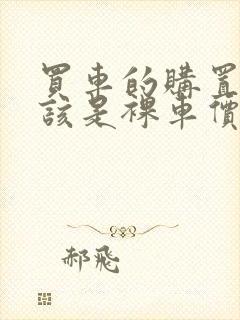 買車的購置
該是裸車價
郝飛